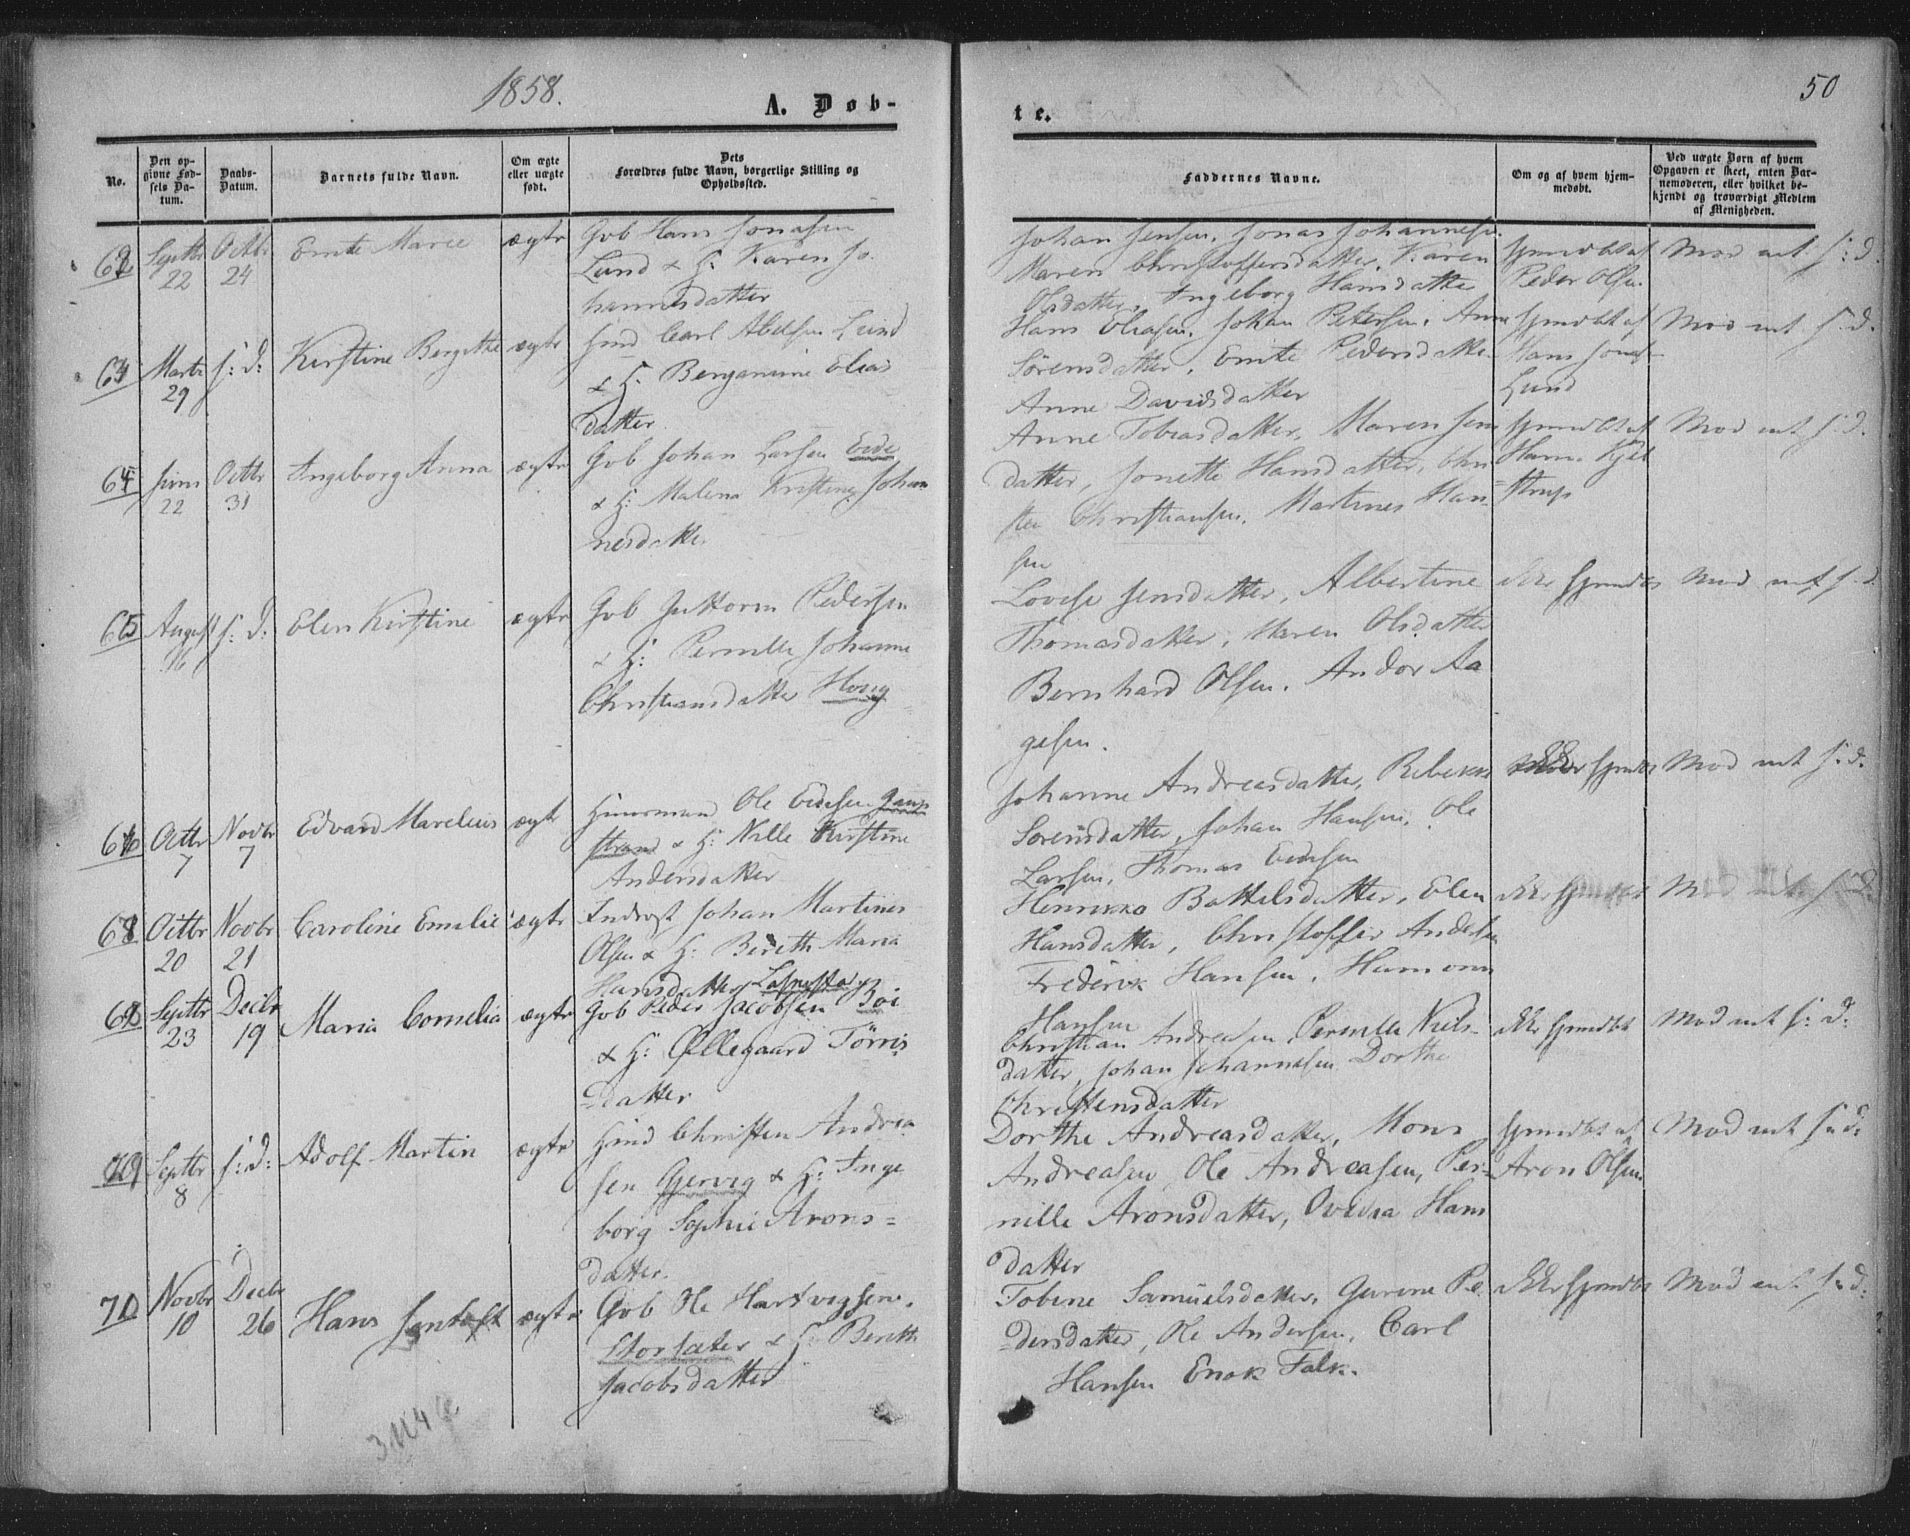 1858.
50
A. Døb-
te.
No.
Den op-
givne Fød-
sels Da-
tum.
Daabs-
Datum.
Barnets fulde Navn.
Om ægte
eller uægte
født.
Dets
Forældres fulde Navn, borgerlige Stilling og
Opholdssted.
Faddernes Navne.
Om og af hvem hjem-
medøbt.
Ved uægte Børn af hvem
Opgaven er skeet, enten Bar-
nemoderen, eller hvilket be-
kjendt og troværdigt Medlem
af Menigheden.
62 Septbr 22
Octbr 24
Emte Marie
ægte
Gvb Hans Jonasen
Lund & H: Karen Jo-
hannesdatter
Johan Jensen, Jonas Johannesen
Maren Christoffersdatter, Karen
Olsdatter, Ingeborg Hansdatter
hjmdbt af
Peder Olsen
Mod ant s: d.
63 Marts 29
s: d:
Kirstine Bergitte
ægte
Carl Abelsen Lund
& H: Benjamine Elias
datter
Hans Eliasen, Johan Petersen, Anne
Sörensdatter, Emte Pedersdatter
Anne Davidsdatter
hjmdbt af
Hans Jonas-
Lund
Mod ant s: d.
64 Juni 22
Octbr 31
Ingeborg Anna
ægte
Gvb Johan Larsen Eide
& H: Malena Kristine Johan
nesdatter
Anne Tobiasdatter, Maren Jens
datter, Jonette Hansdatter, Chri-
sten Christiansen, Martines Han-
sen
hjmdbt af
Hans Kjel
strup
Mod ant s: d.
65 August 16
s: d:
Elen Kirstine
ægte
Gvb Guttorm Pedersen
& H: Pernille Johanne
Christiansdatter Hveg
Lovise Jensdatter, Albertine
Thomasdatter, Maren Olsdatter
Bernhard Olsen, Andor Aa
gesen.
ikke hjmdbt
Mod ant s: d.
66 Octbr 7
Novbr 7
Edvard Marelius
ægte
Huusmand Ole Einsen
strand & H: Nille Kirstine
Andersdatter
Johanne Andreasdatter, Rebekka
Sörensdatter, Johan Hansen, Ole
Larsen, Thomas Einsen
ikke hjmdbt
Mod ant s: d.
68 Octbr 20
Novbr 21
Caroline Emilie
ægte
Indrst Johan Martines
Olsen & H: Bereth Maria
Hansdatter
Henrikke Battelsdatter, Elen
Hansdatter, Christoffer Andersen
Frederik Hansen, Humonn
Hansen
ikke hjmdbt
Mod ant s: d.
68 Septbr 23
Decbr 19
Maria Cornelia
ægte
Gvb Peder Jacobsen Boi
& H: Øllegaard Törris
datter
Christian Andreasen, Pernille Niels-
datter, Johan Johannesen Dorthe
Christensdatter
ikke hjmdbt
Mod ant s: d:
69 Septbr 8
s: d:
Adolf Martin
ægte
Christen Andrea
sen Gjerveg & H: Inge
borg Sophie Arons-
datter.
Dorthe Andreasdatter, Mons
Andreasen, Ole Andreasen, Per-
nille Aronsdatter, Ovedia Hans
datter
hjmdbt af
Aron Olsen
Mod ant s: d:
70 Novbr 10
Decbr 26
Hans Jentoft
ægte
Gvb Ole Hartvigsen
Storsæter & H: Bereth
Jacobsdatter
Tobine Samuelsdatter, Gurine Pe-
dersdatter, Ole Andersen, Carl
Hansen Enok Falk.
ikke hjmdbt
Mod ant s: d: